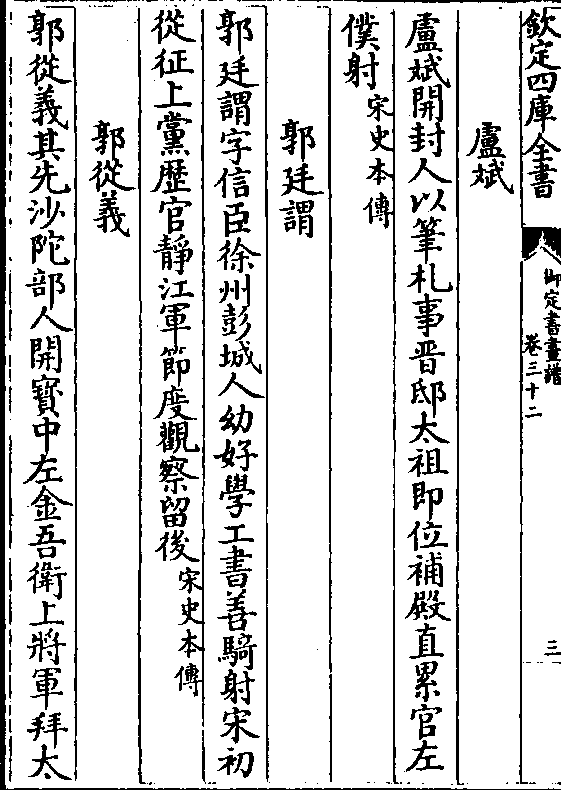 欽定四庫全書
御定書畫譜
卷三十二
三
盧斌
盧斌開封人以筆札事晉邸太祖即位補殿直累官左
僕射宋史本傳
郭廷謂
郭廷謂字信臣徐州彭城人幼好學工書善騎射宋初
從征上黨歷官靜江軍節度觀察留後宋史本傳
郭從義
郭從義其先沙陀部人開寶中左金吾衛上將軍拜太